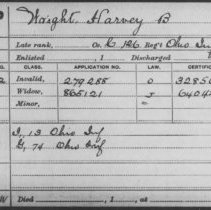 Wright, Harvey B
Late rank, Co. G 126 Reg't Ohio Inf
Enlisted , 1 Discharged
No. CLASS. APPLICATION NO. LAW. CERTIF
Invalid, 279288
Widow, 865121
Minor,
I, 13 Ohio Inf
G, 74 Ohio Inf
Died , 1 , at